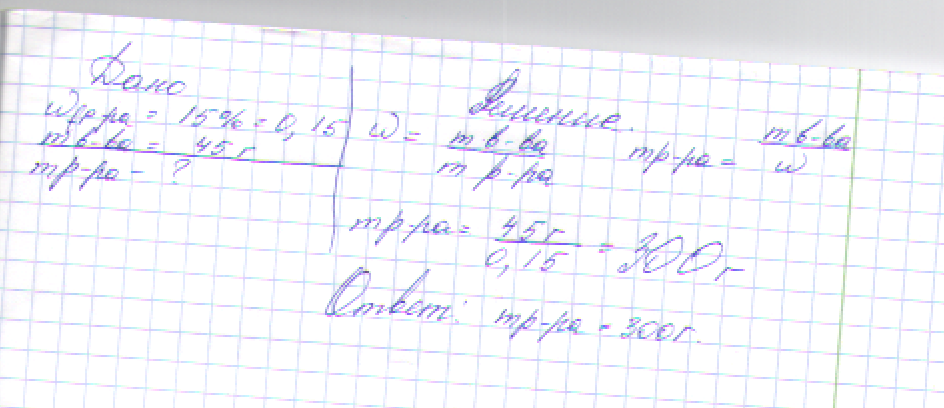 Дано
Wр-ра = 15% = 0,15
mв-ва = 45 г
mр-ра - ?
Решение.
W = mв-ва / mр-ра mр-ра = mв-ва / W
mр-ра = 45 г / 0,15 = 300 г
Ответ: mр-ра = 300 г.